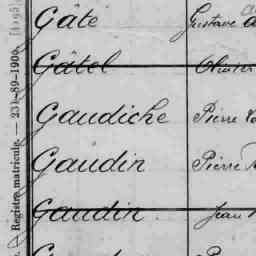 Gâté Gustave
Gâtel Olivier
Gaudiche Pierre
Gaudin Pierre
Gaudin Jean
Registre matricule. — 231-89-1900. [4195]